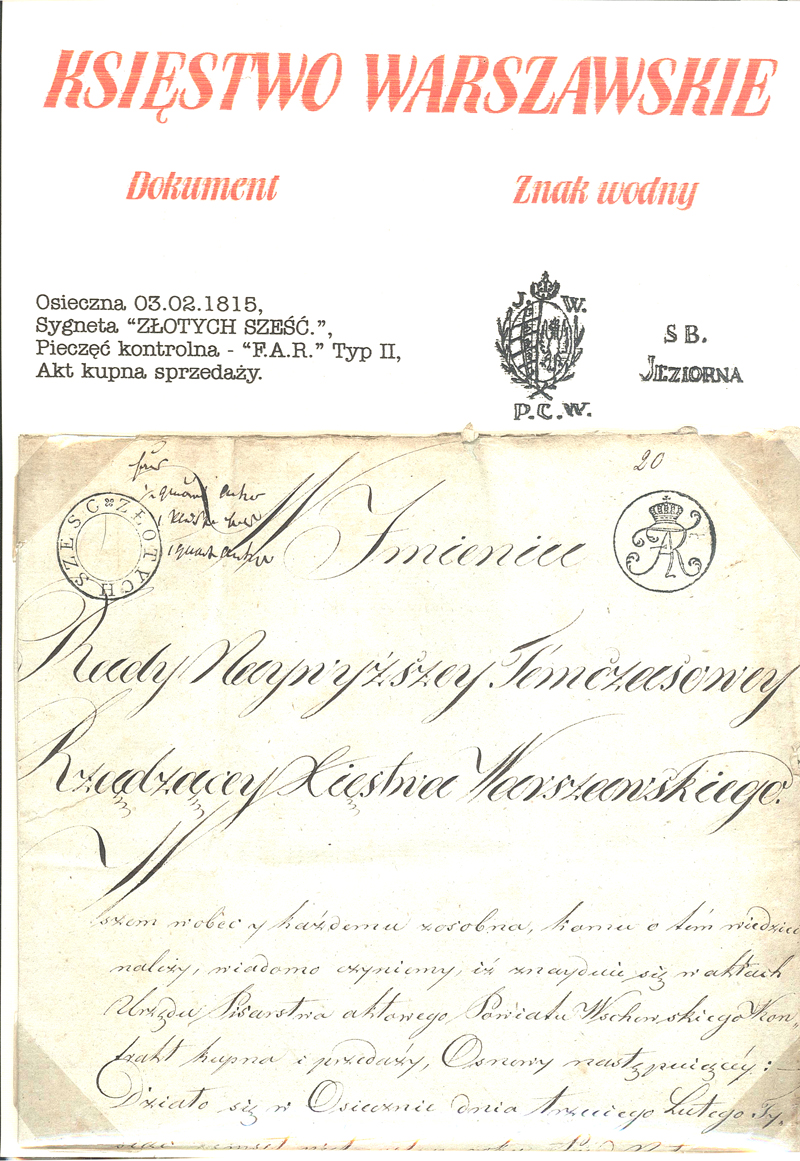 KSIĘSTWO WARSZAWSKIE
Dokument
Znak wodny
Osieczna 03.02.1815,
Sygneta “ZŁOTYCH SZEŚĆ.”,
Pieczęć kontrolna - “F.A.R.” Typ II,
Akt kupna sprzedaży.
J. W.
P.C.W.
SB.
JEZIORNA
20
SZESC ZŁOTYCH
FAR
W Imieniu
Rady Naywyższey Témczasowey
Rządzącey Xięstwa Warszawskiego.
Wszem wobec y każdemu zosobna, komu o tém wiedzieć
należy, wiadomo czyniemy, iż znayduie się w aktach
Urzędu Pisarstwa aktowego Powiatu Wschowskiego Kon„
trakt kupna i przedaży, Osnowy następuiącéy: –
Działo się w Osiecznie dnia trzeciego Lutego Ty„